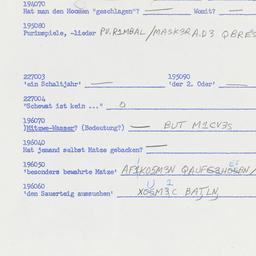 194070
Hat man den Hooman "geschlagen"? — Womit? —
195080
Purimspiele, -lieder PU.RIMBAL / MASK3R A.D3
227003 195090
'ein Schaltjahr' — 'der 2. Oder' —
227004
"Schewat ist kein ..." O
196070
Mitzwe-Wasser? (Bedeutung?) — BUT M1CV3S
196040
Hat jemand selbst Matze gebacken? —
196050
'besonders bewahrte Matze'
196060
'den Sauerteig aussuchen' BATJLN